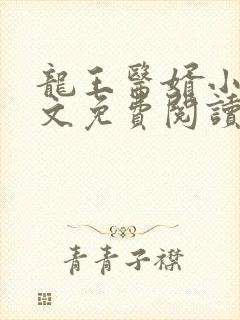 龍王醫婿小
文免費閱讀
青青子襟